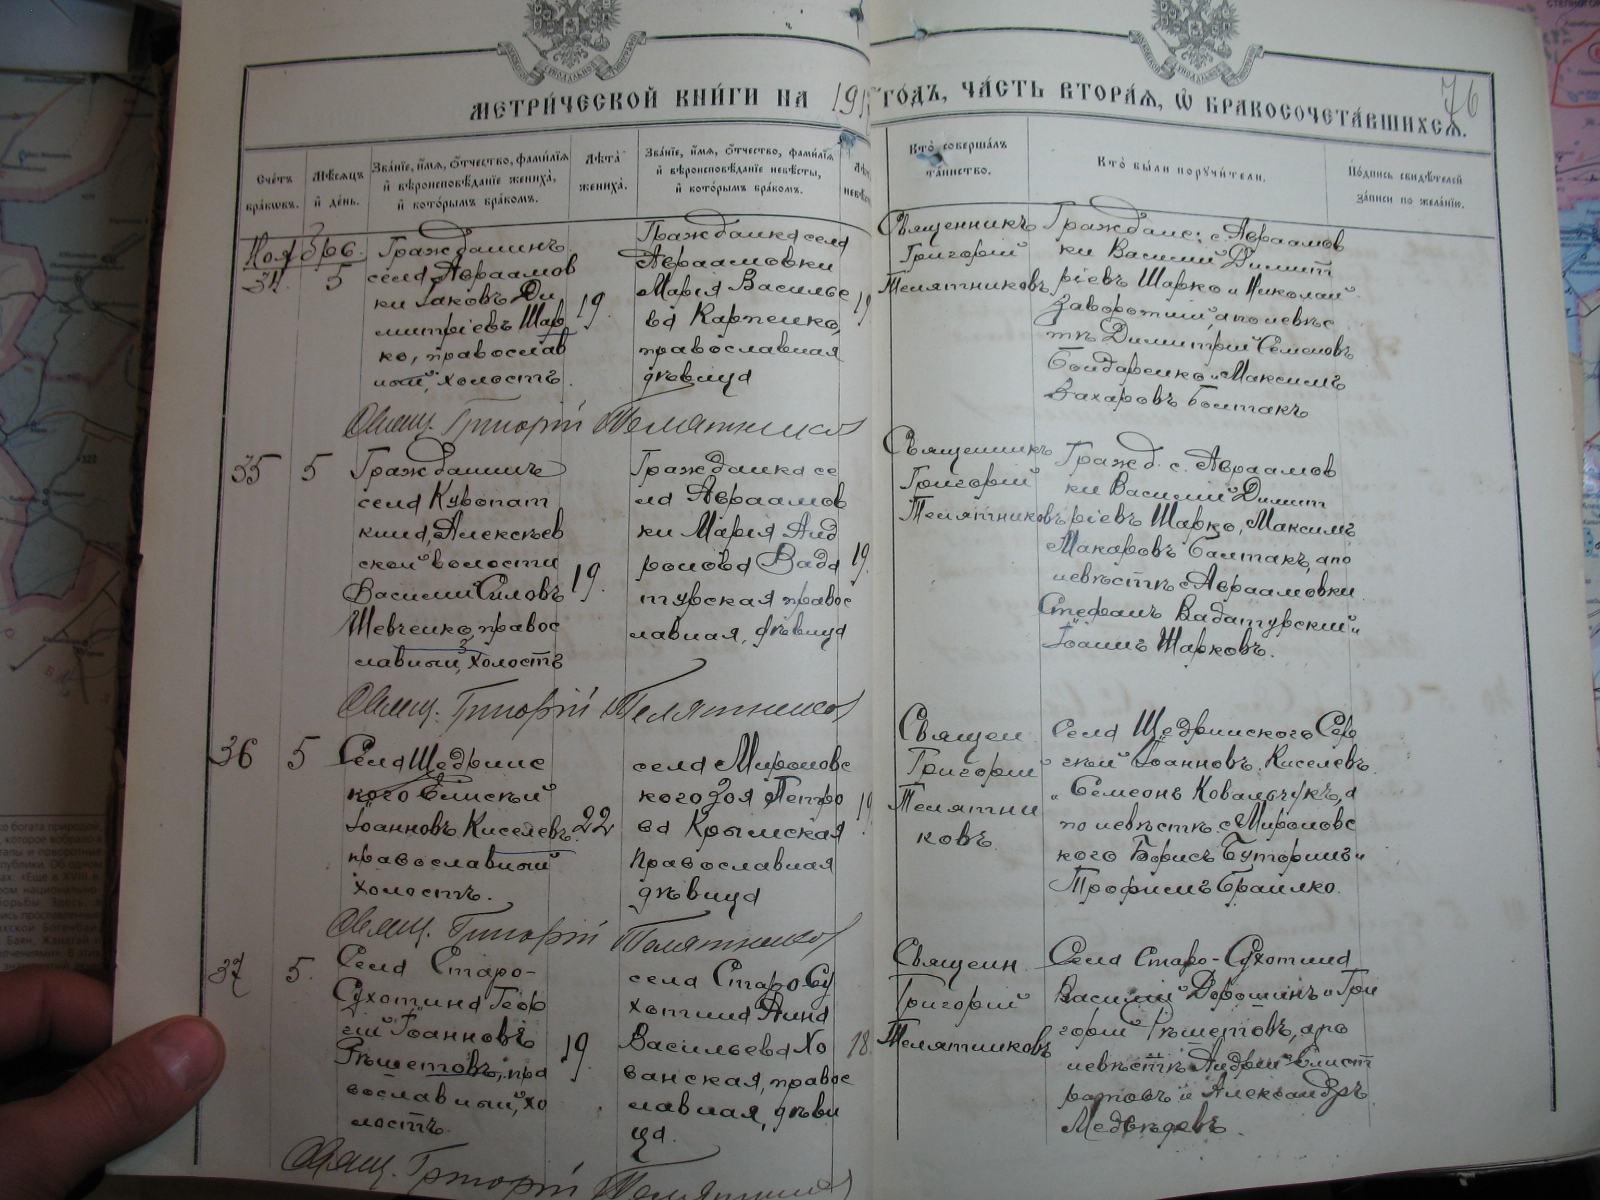 МЕТРИ́ЧЕСКОЙ КНИ́ГИ НА 191
ГО́ДЪ, ЧА́СТЬ ВТОРА́Ѧ, Ѡ҆ БРАКОСОЧЕТА́ВШИХСѦ.
76
Сче́тъ
бра́кѡвъ.
Мѣ́сѧцъ
и҆ де́нь.
Зва́нїе, и҆́мѧ, ѻ҆́тчество, фами́лїѧ
и҆ вѣроисповѣ́данїе жениха̀,
и҆ кото́рымъ бра́комъ.
Лѣ́та
жениха̀.
Зва́нїе, и҆́мѧ, ѻ҆́тчество, фами́лїѧ
и҆ вѣроисповѣ́данїе невѣ́сты,
и҆ кото́рымъ бра́комъ.
Кто̀ соверша́лъ
та́инство.
Кто̀ бы́ли порꙋчи́тели.
По́дпись свидѣ́телей
за́писи по жела́нїю.
Ноябрь.
34.
5
Гражданинъ
села Авраамов
ки Іаковъ Ди
митріевъ Шар
ко, православ
ный, холостъ.
19.
Гражданка села
Авраамовки
Марія Василье
ва Карпенко,
православная
дѣвица
19
Священникъ
Григорій
Телятниковъ
Граждане: с. Авраамов
ки Василий Димит
ріевъ Шарко и Николай
Заворотний, а по невѣс
тѣ Димитрій Семеновъ
Бондаренко и Максимъ
Захаровъ Болтакъ
Свящ. Григорій Телятников
35
5
Гражданинъ
села Куропат
кина, Алексѣев
ской волости
Василий Силовъ
Шевченко, правос
лавный, холостъ
19.
Гражданка се
ла Авраамов
ки Марія Анд
ронова Вада
турская правос
лавная, дѣвица
19.
Священникъ
Григорій
Телятниковъ
Гражд. с. Авраамов
ки Василий Димит
ріевъ Шарко, Максимъ
Макаровъ Балтакъ, а по
невѣстѣ с. Авраамовки
Стефанъ Вадатурский и
Іоаннъ Шарковъ.
Свящ. Григорій Телятников
36
5
Села Щедринс
кого Елисѣй
Іоанновъ Киселевъ
православный
холостъ.
22
села Мироновс
кого Зоя Петро
ва Крымская
православная
дѣвица
19
Священ
Григорій
Телятни
ковъ.
Села Щедринского Сер
гѣй Іоанновъ Киселевъ
и Семеонъ Ковальчукъ, а
по невѣстѣ с. Мироновс
кого Борисъ Буторинъ и
Трофимъ Браилко.
Свящ. Григорій Телятников
37
5.
Села Старо-
Сухотина Геор
гий Іоанновъ
Рѣшетовъ, пра
вославный, хо
лостъ.
19.
села Старо Су
хотина Анна
Васильева Хо
ванская, правос
лавная, дѣви
ца.
18.
Священн.
Григорій
Телятниковъ
Села Старо-Сухотина
Василий Дорошинъ и Гри
горий Рѣшетовъ, а по
невѣстѣ Андрей Елист
ратовъ и Александръ
Медвѣдевъ.
Свящ. Григорій Телятников